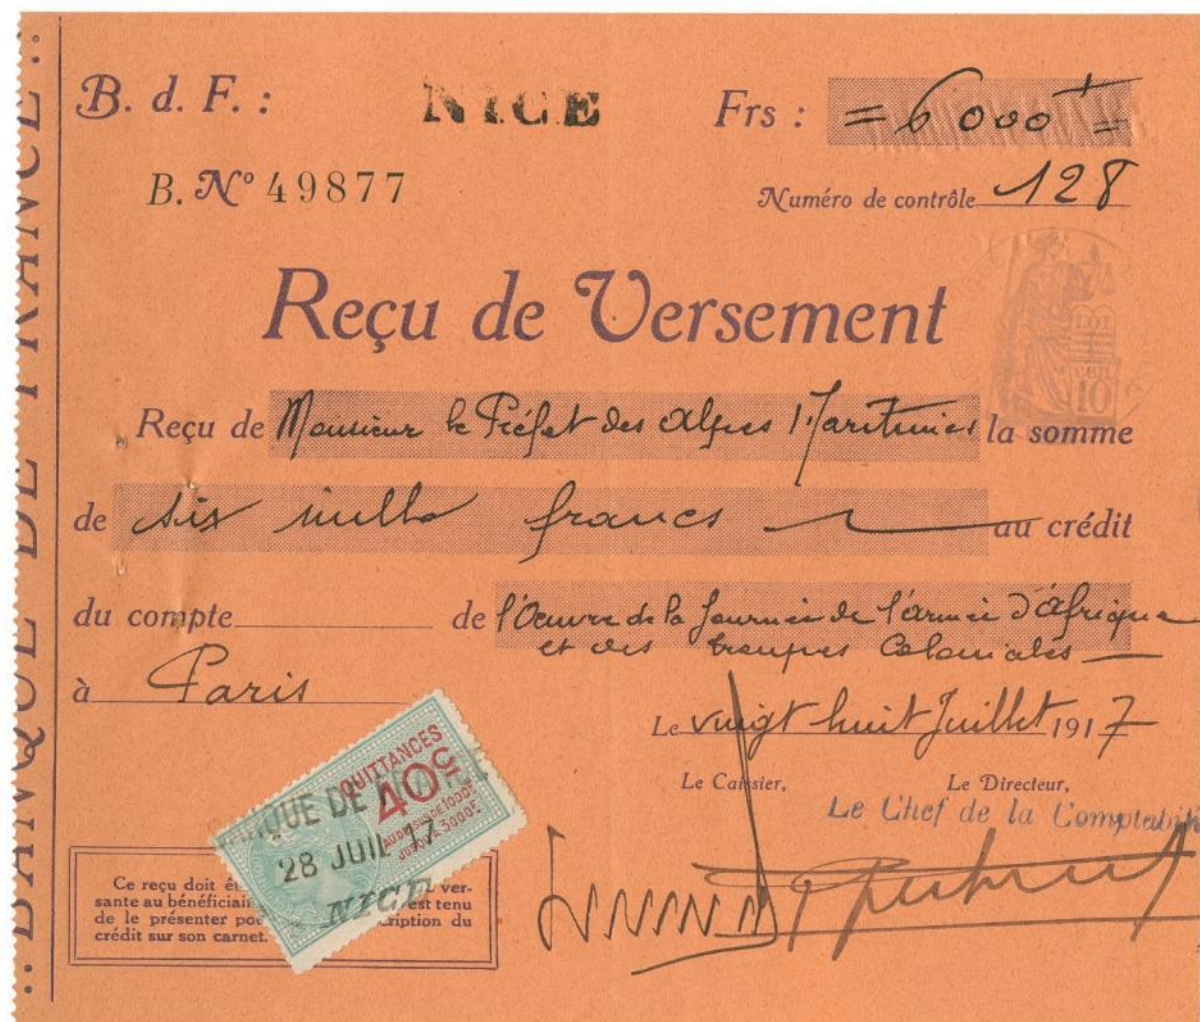 .: BANQUE DE FRANCE :.
B. d. F. : NICE Frs : = 6000 =
B. N° 49877 Numéro de contrôle 128
Reçu de Versement
LOI
cen
10
Reçu de Monsieur le Préfet des Alpes Maritimes la somme
de six mille francs au crédit
du compte de l'Oeuvre de la Journée de l'armée d'Afrique
et des troupes Coloniales
à Paris
Le vingt huit Juillet 1917
Le Caissier, Le Directeur,
Le Chef de la Comptabi
QUITTANCES
40c
AU DESSUS DE 1000F
JUSQU'A 3000F
BANQUE DE FRANCE
28 JUIL 17
NICE
Ce reçu doit ver-
sante au bénéficiai est tenu
de le présenter po ription du
crédit sur son carnet.